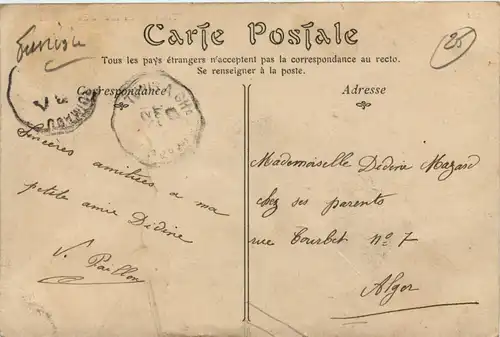 Carte Postale
Tous les pays étrangers n'acceptent pas la correspondance au recto.
Se renseigner à la poste.
Correspondance
Adresse
26
Sincères amitiées a ma
petite amie Dédine
V. Paillon
Mademoiselle Dédine Mazard
chez ses parents
rue Courbet nº 7
Alger